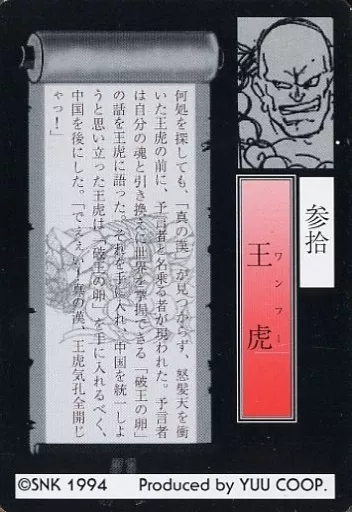 参拾
王虎
ワンフー
何処を探しても、「真の漢」が見つからず、怒髪天を衝
いた王虎の前に、予言者と名乗る者が現われた。予言者
は自分の魂と引き換えに世界を掌握できる「破王の卵」
の話を王虎に語った。それを手に入れ、中国を統一しよ
うと思い立った王虎は、「破王の卵」を手に入れるべく、
中国を後にした。「でぇぇい!真の漢、王虎気孔全開じ
ゃっ!」
©SNK 1994
Produced by YUU COOP.